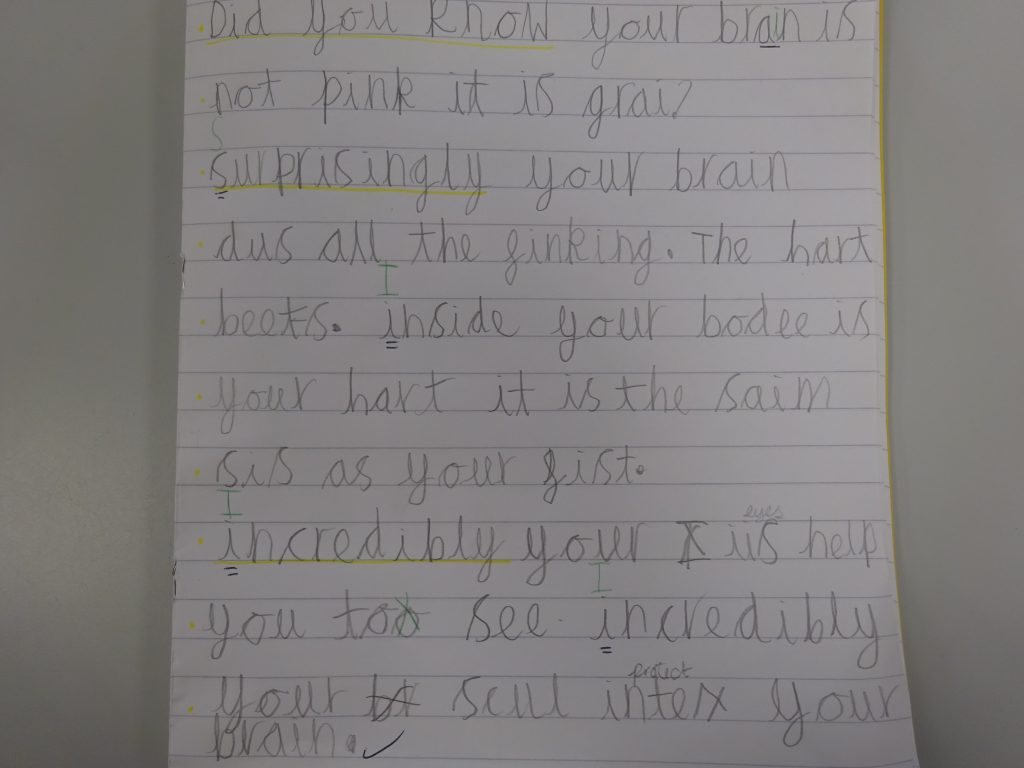 Did you know your brain is
not pink it is grai?
S
surprisingly your brain
dus all the finking. The hart
I
beets. inside your bodee is
your hart it is the saim
sis as your fist.
I
eyes
incredibly your iis help
I
you too see. incredibly
protect
your scul inter your
brain.